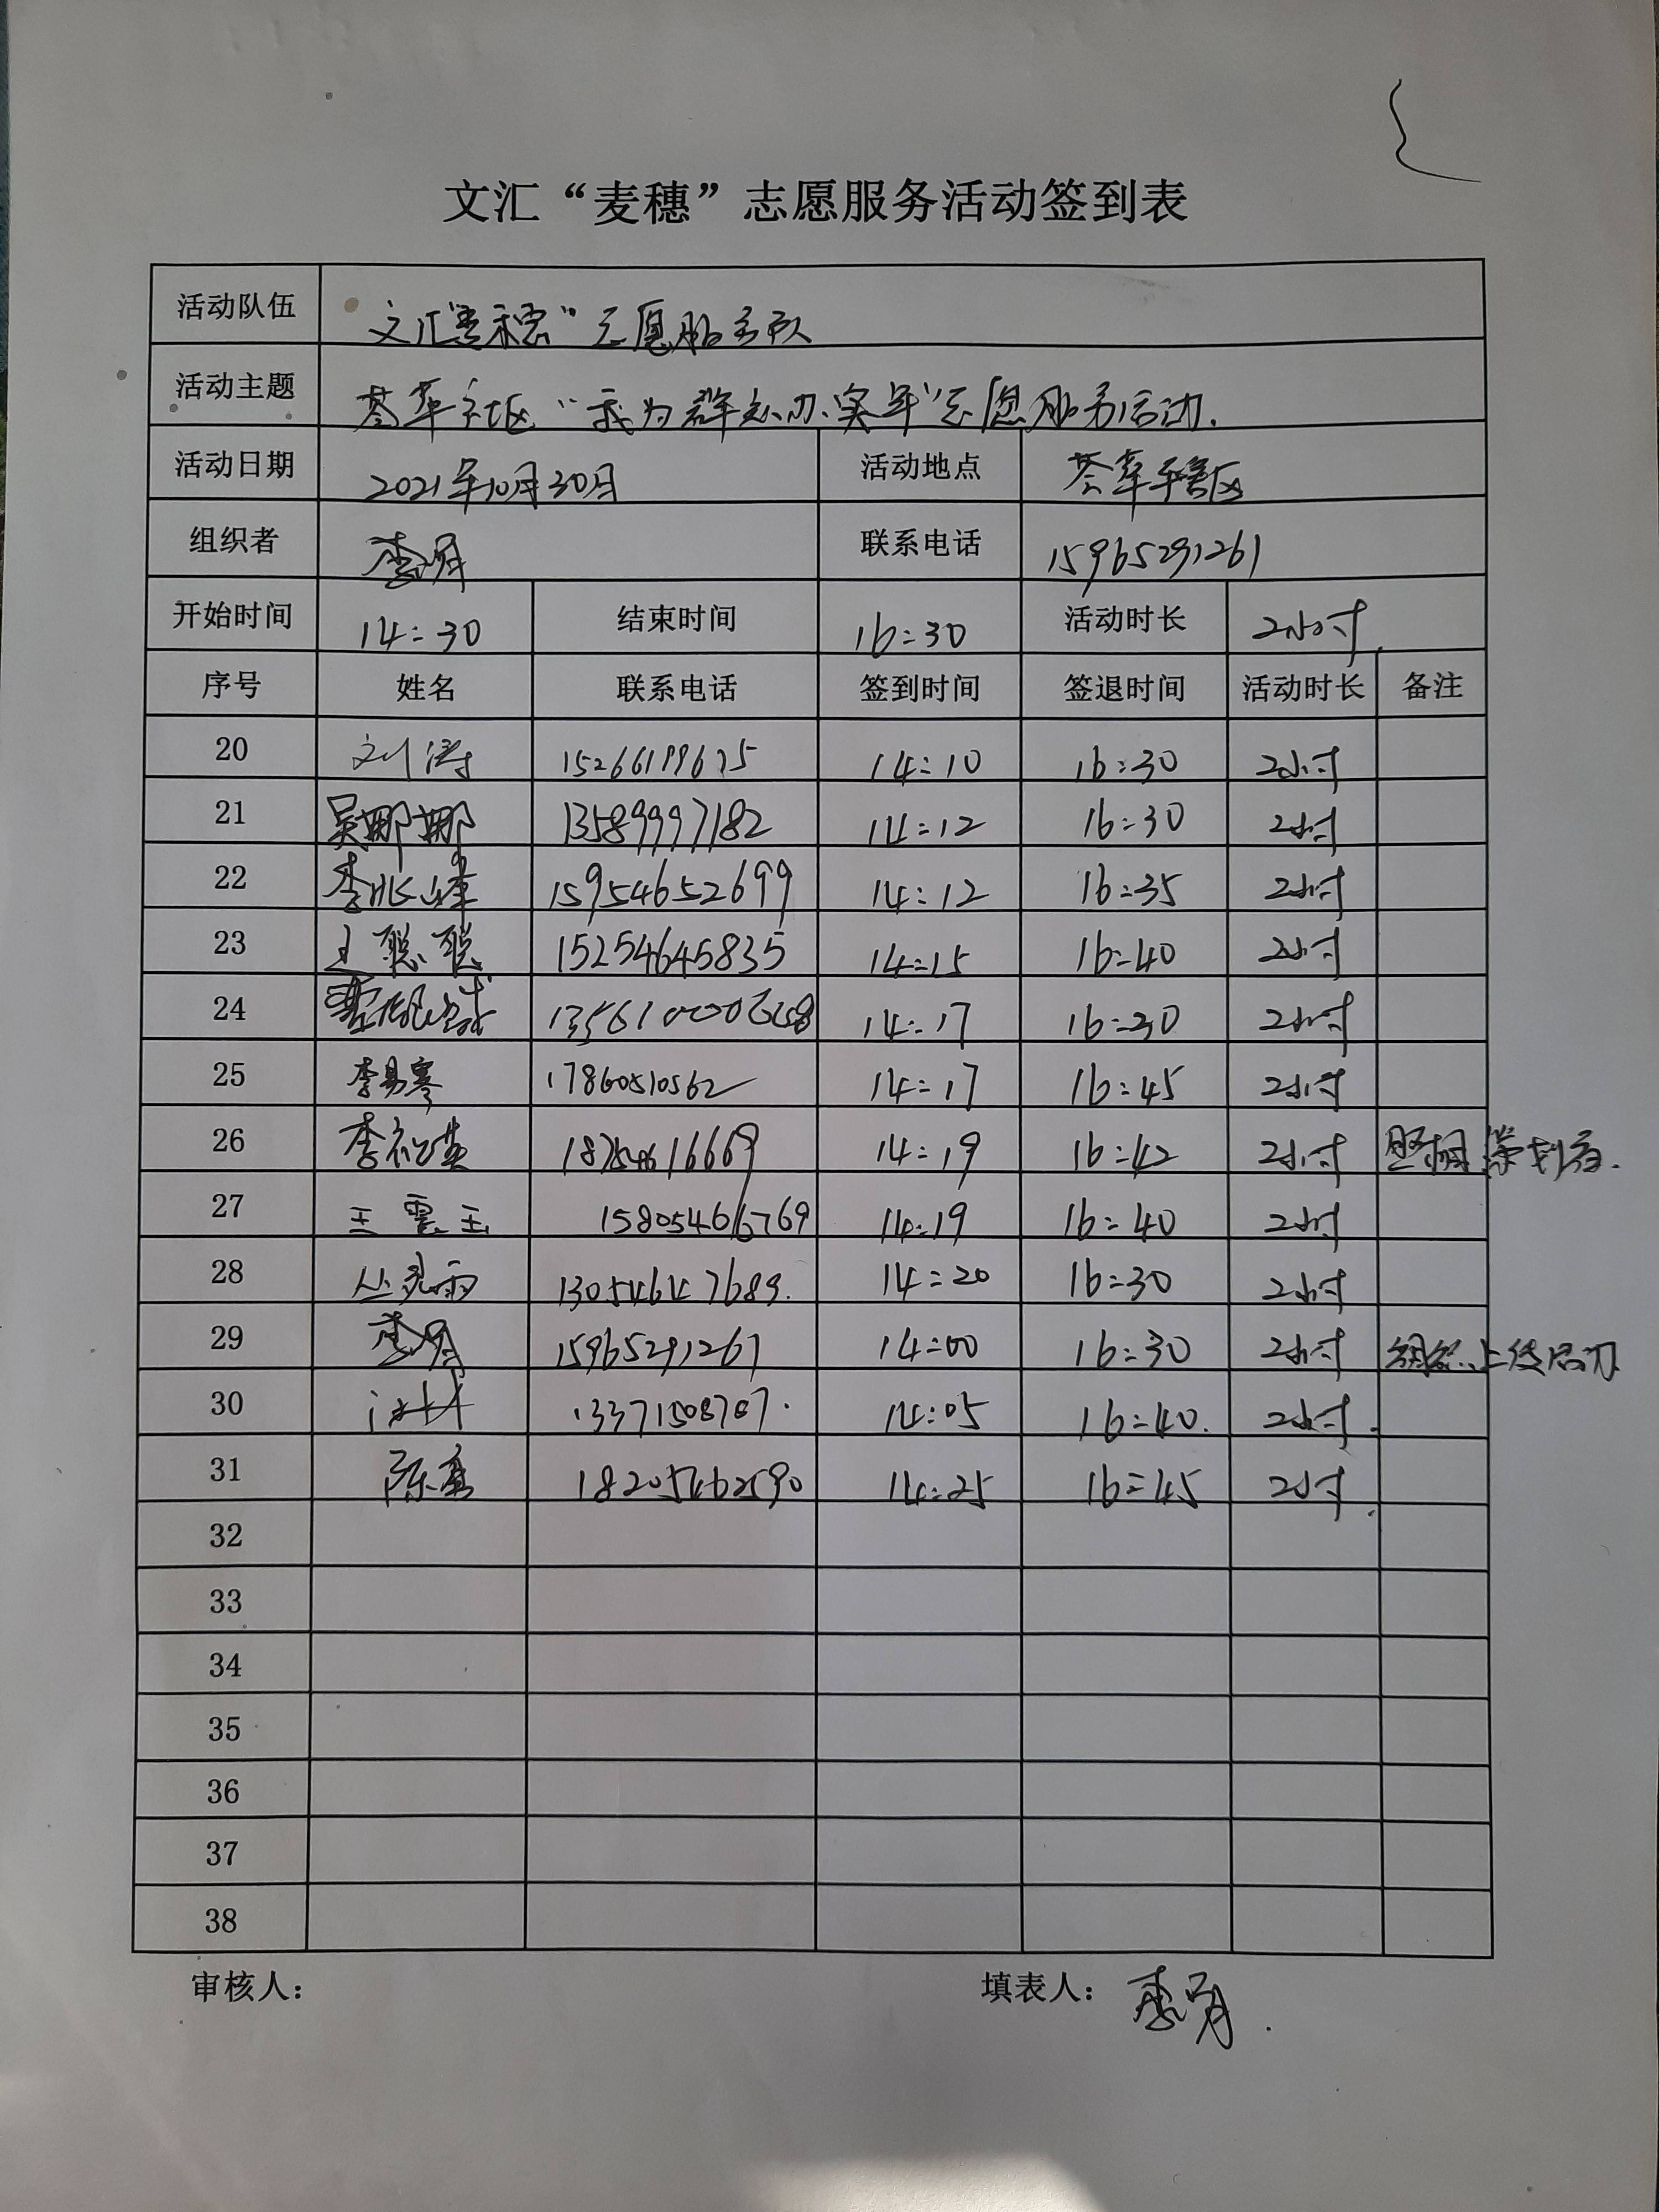 文汇“麦穗”志愿服务活动签到表
活动队伍 文汇“麦穗”志愿服务队
活动主题 荟萃社区“我为群众办实事”志愿服务活动.
活动日期 2021年10月30日 活动地点 荟萃辖区
组织者 李月 联系电话 15965291261
开始时间 14:30 结束时间 16:30 活动时长 2小时
序号 姓名 联系电话 签到时间 签退时间 活动时长 备注
20 刘涛 14:10 16:30 2小时
21 吴娜娜 13589997182 14:12 16:30 2小时
22 李兆峰 15954652699 14:12 16:35 2小时
23 王聪聪 15254645835 14:15 16:40 2小时
24 14:17 16:30 2小时
25 李易寒 17860510562 14:17 16:45 2小时
26 李 14:19 16:42 2小时
27 王 15805466769 14:19 16:40 2小时
28 丛 13054647689. 14:20 16:30 2小时
29 李月 15965291261 14:00 16:30 2小时
30 13371508707. 14:05 16:40. 2小时.
31 陈 18205462590 14:25 16:45 2小时.
32
33
34
35
36
37
38
审核人： 填表人： 李月.